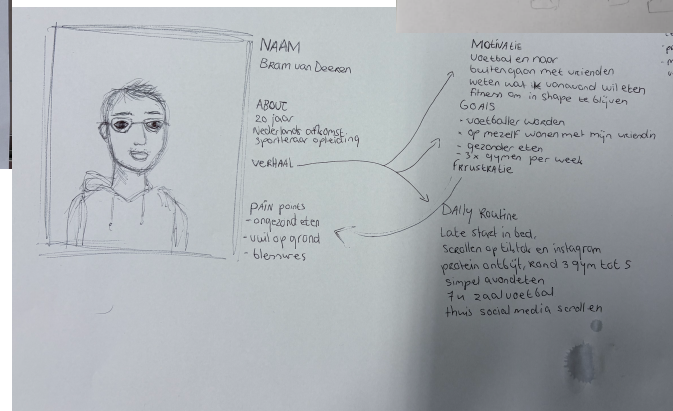 NAAM
Bram van Deeren
ABOUT
20 jaar
Nederlands afkomst.
sportleraar opleiding
VERHAAL
PAIN POINTS
- ongezond eten
- vuil op grond
- blessures
MOTIVATIE
voetbal en naar
buiten gaan met vrienden
weten wat ik vanavond wil eten
fitness om in shape te blijven
GOALS
- voetballer worden
- op mezelf wonen met mijn vriendin
- gezonder eten
- 3x gymen per week
FRUSTRATIE
DAILY Routine
Late start in bed,
scrollen op tiktok en instagram
protein ontbijt, rond 3 gym tot 5
simpel avondeten
7u zaalvoetbal
thuis social media scrollen